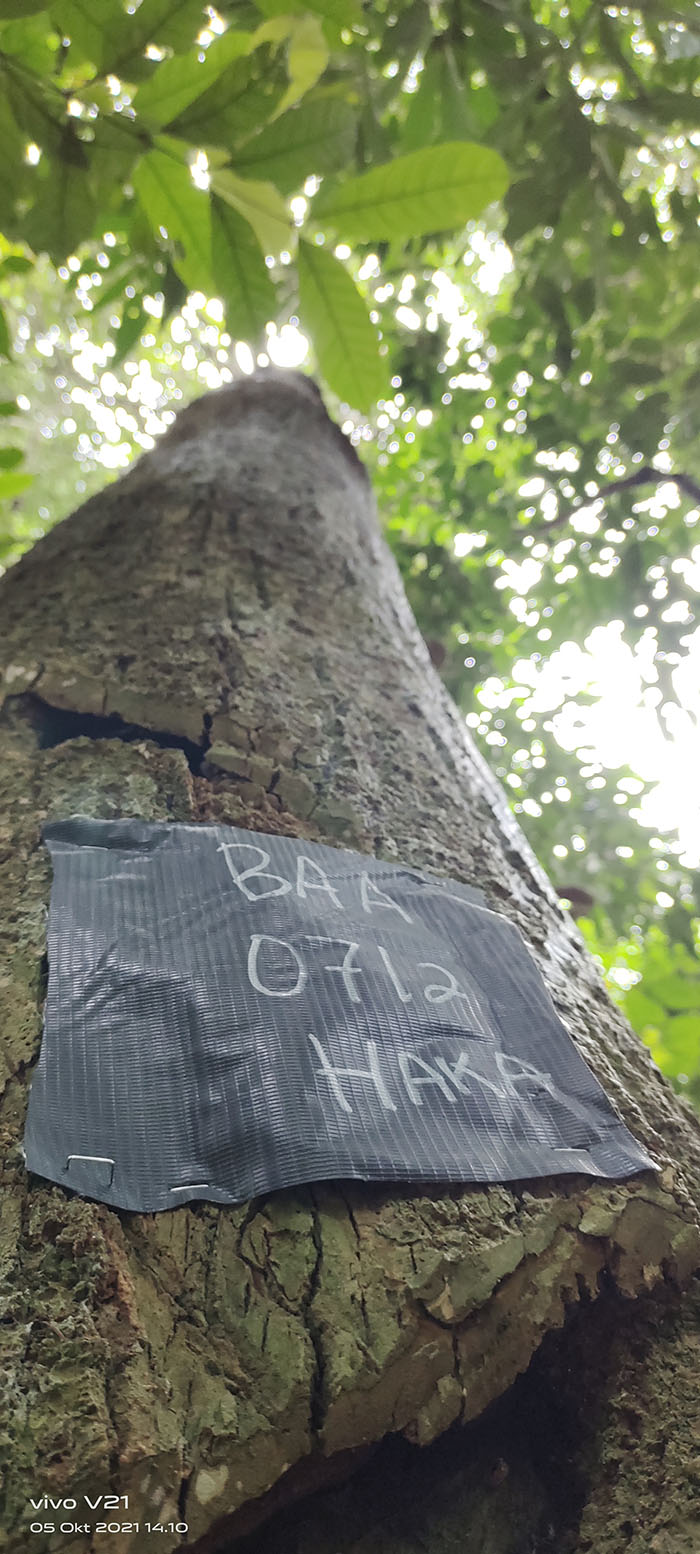 BAA
0712
HAKA
vivo V21
05 Okt 2021 14.10